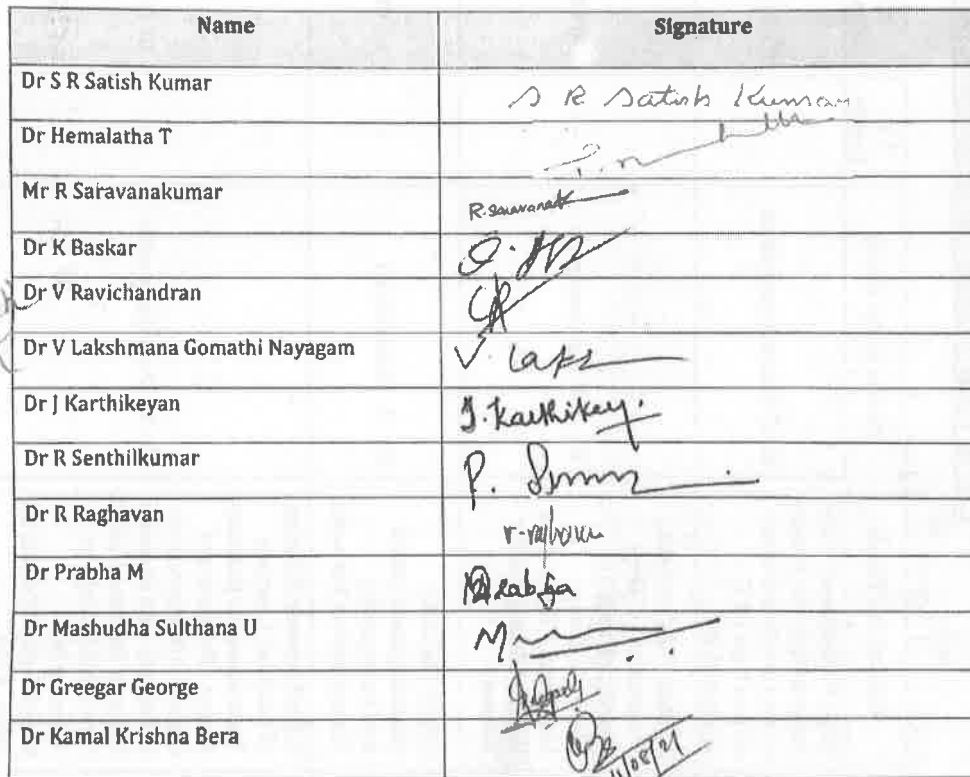 Name Signature
Dr S R Satish Kumar S R Satish Kumar
Dr Hemalatha T
Mr R Saravanakumar R. Saravanak
Dr K Baskar
Dr V Ravichandran
Dr V Lakshmana Gomathi Nayagam V. Laks
Dr J Karthikeyan J. Karthikey.
Dr R Senthilkumar
Dr R Raghavan
Dr Prabha M Prabha
Dr Mashudha Sulthana U
Dr Greegar George
Dr Kamal Krishna Bera